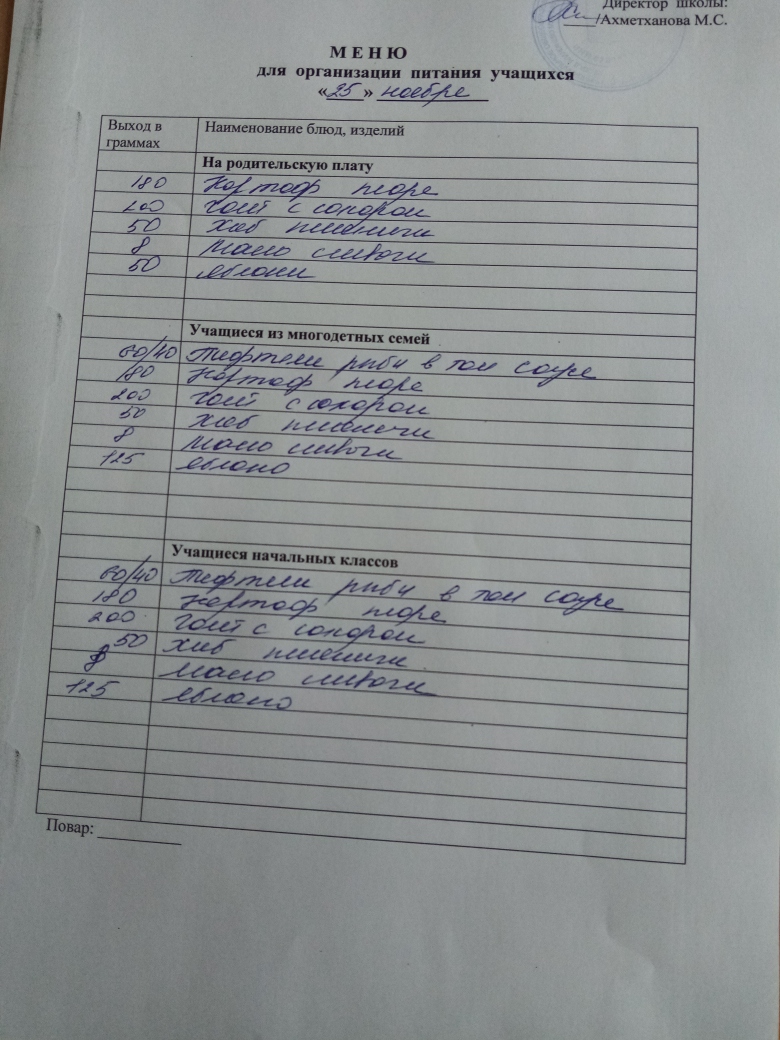 Директор школы:
/Ахметханова М.С.
М Е Н Ю
для организации питания учащихся
«25» ноебре
Выход в граммах Наименование блюд, изделий
На родительскую плату
180 Картоф пюре
200 Чай с сахаром
50 Хлеб пшеничн
8 Масло сливочн
50 яблоки
Учащиеся из многодетных семей
60/40 Тефтели рыбн в том соусе
180 Картоф пюре
200 Чай с сахаром
50 Хлеб пшеничн
8 Масло сливочн
125 яблоко
Учащиеся начальных классов
60/40 Тефтели рыбн в том соусе
180 Картоф пюре
200 Чай с сахаром
50 Хлеб пшеничн
8 Масло сливочн
125 яблоко
Повар: